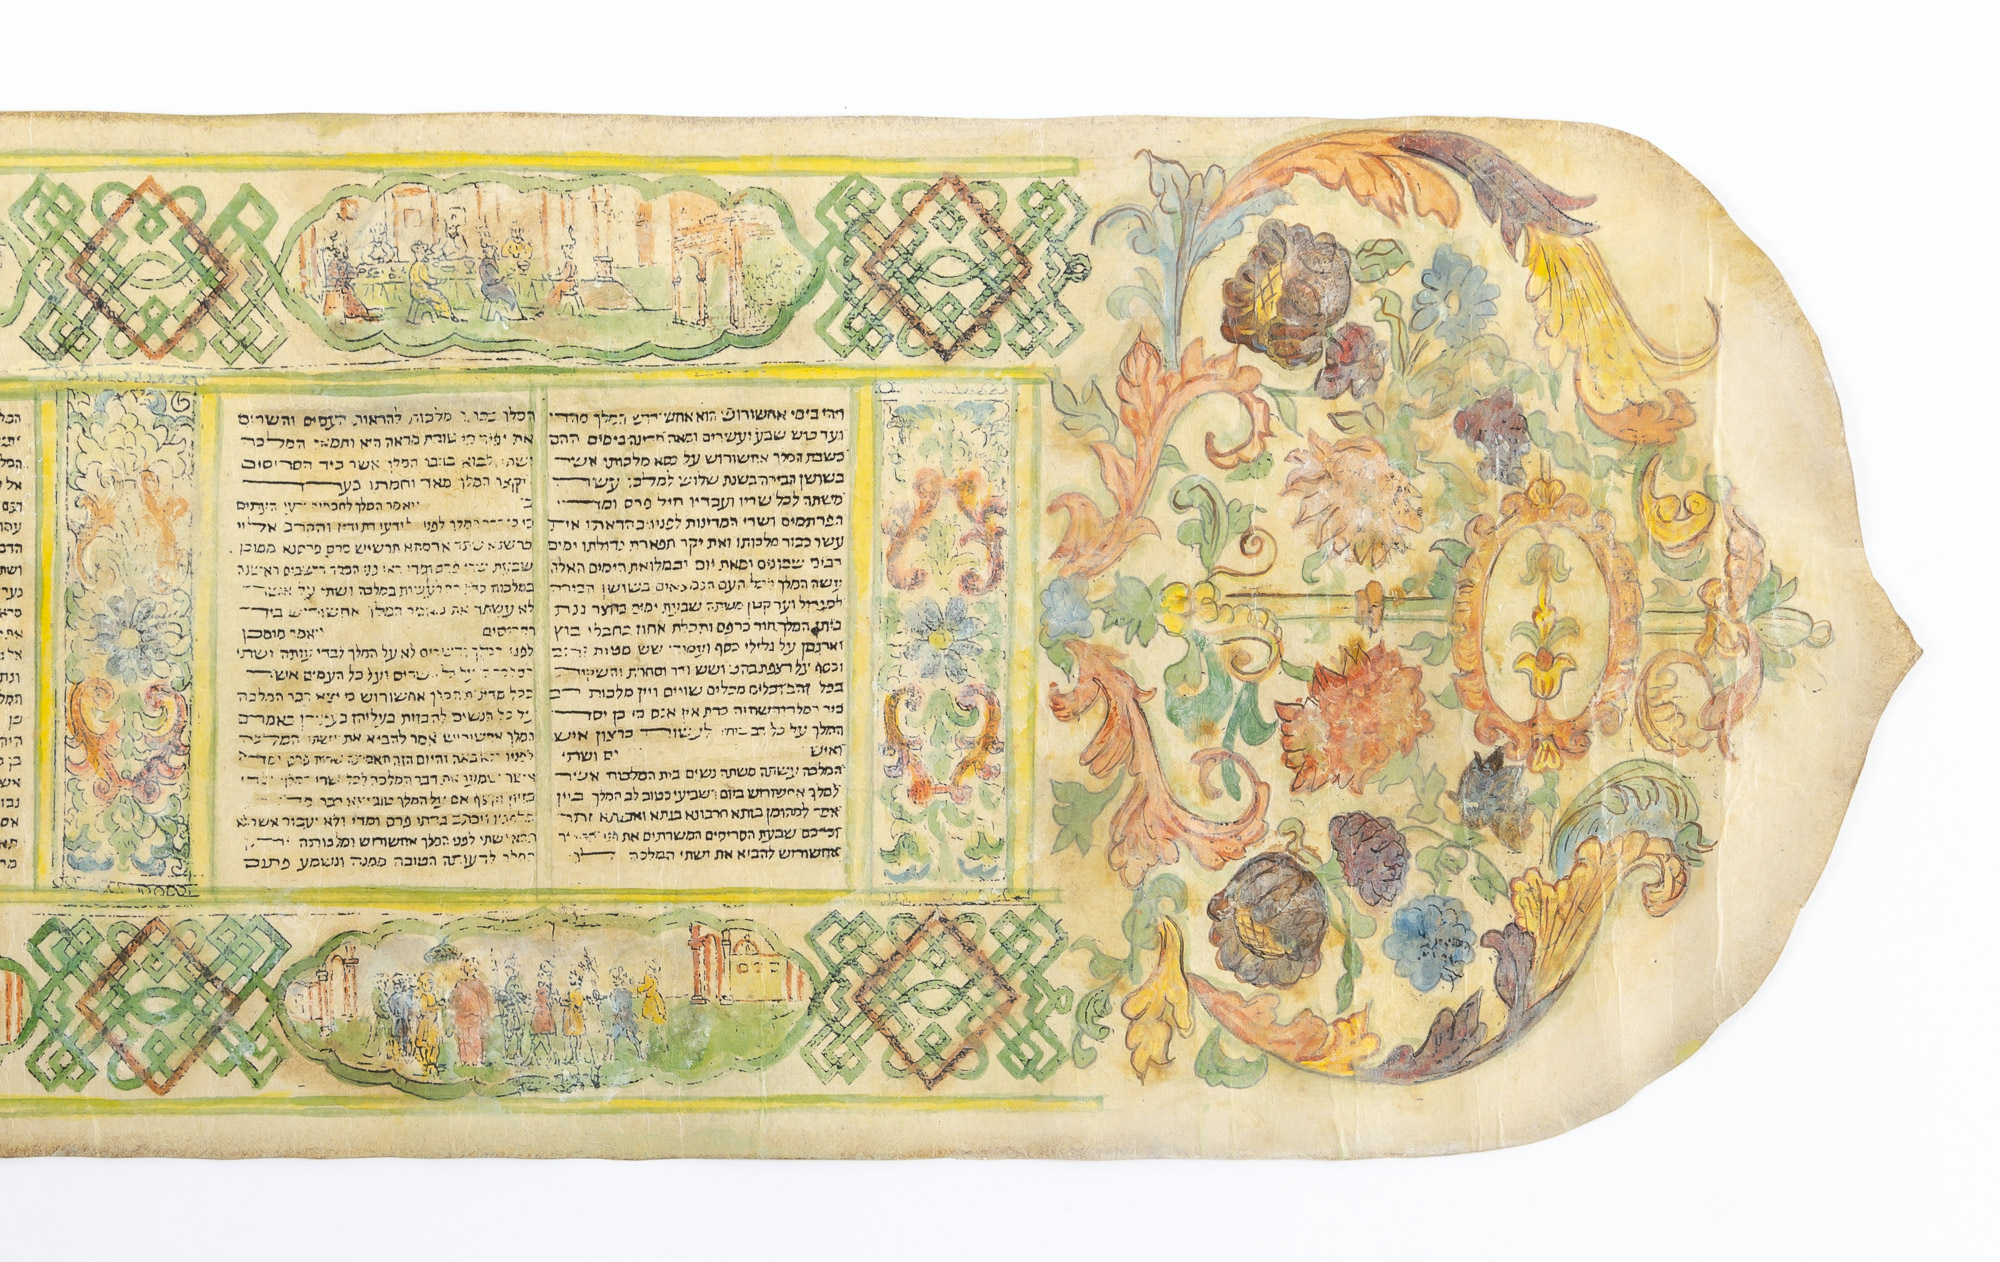 ויהי בימי אחשורוש הוא אחשורוש המלך מהדו
ועד כוש שבע ועשרים ומאה מדינה בימים ההם
כשבת המלך אחשורוש על כסא מלכותו אשר
בשושן הבירה בשנת שלוש למלכו עשה
משתה לכל שריו ועבדיו חיל פרס ומדי
הפרתמים ושרי המדינות לפניו בהראתו את
עשר כבוד מלכותו ואת יקר תפארת גדולתו ימים
רבים שמונים ומאת יום ובמלואת הימים האלה
עשה המלך לכל העם הנמצאים בשושן הבירה
למגדול ועד קטן משתה שבעת ימים בחצר גנת
ביתן המלך חור כרפס ותכלת אחוז בחבלי בוץ
וארגמן על גלילי כסף ועמודי שש מטות זהב
וכסף על רצפת בהט ושש ודר וסחרת והשקות
בכלי זהב וכלים מכלים שונים ויין מלכות רב
כיד המלך והשתיה כדת אין אנס כי כן יסד
המלך על כל רב ביתו לעשות כרצון איש
ואיש גם ושתי
המלכה עשתה משתה נשים בית המלכות אשר
למלך אחשורוש ביום השביעי כטוב לב המלך ביין
אמר למהומן בזתא חרבונא בגתא ואבגתא זתר
וכרכס שבעת הסריסים המשרתים את פני המלך
אחשורוש להביא את ושתי המלכה
המלך בכתר מלכות להראות העמים והשרים
את יפיה כי טובת מראה היא ותמאן המלכה
ושתי לבוא בדבר המלך אשר ביד הסריסים
ויקצף המלך מאד וחמתו בערה
בו ויאמר המלך לחכמים ידעי העתים
כי כן דבר המלך לפני כל ידעי דת ודין והקרב אליו
כרשנא שתר אדמתא תרשיש מרס מרסנא ממוכן
שבעת שרי פרס ומדי ראי פני המלך הישבים ראשנה
במלכות כדת מה לעשות במלכה ושתי על אשר
לא עשתה את מאמר המלך אחשורוש ביד
הסריסים ויאמר מומכן
לפני המלך והשרים לא על המלך לבדו עותה ושתי
המלכה כי על כל השרים ועל כל העמים אשר
בכל מדינות המלך אחשורוש כי יצא דבר המלכה
על כל הנשים להבזות בעליהן בעיניהן באמרם
המלך אחשורוש אמר להביא את ושתי המלכה
לפניו ולא באה והיום הזה תאמרנה שרות פרס ומדי
אשר שמעו את דבר המלכה לכל שרי המלך וכדי
בזיון וקצף אם על המלך טוב יצא דבר מלכות
מלפניו ויכתב בדתי פרס ומדי ולא יעבור אשר לא
תבוא ושתי לפני המלך אחשורוש ומלכותה יתן
המלך לרעותה הטובה ממנה ונשמע פתגם